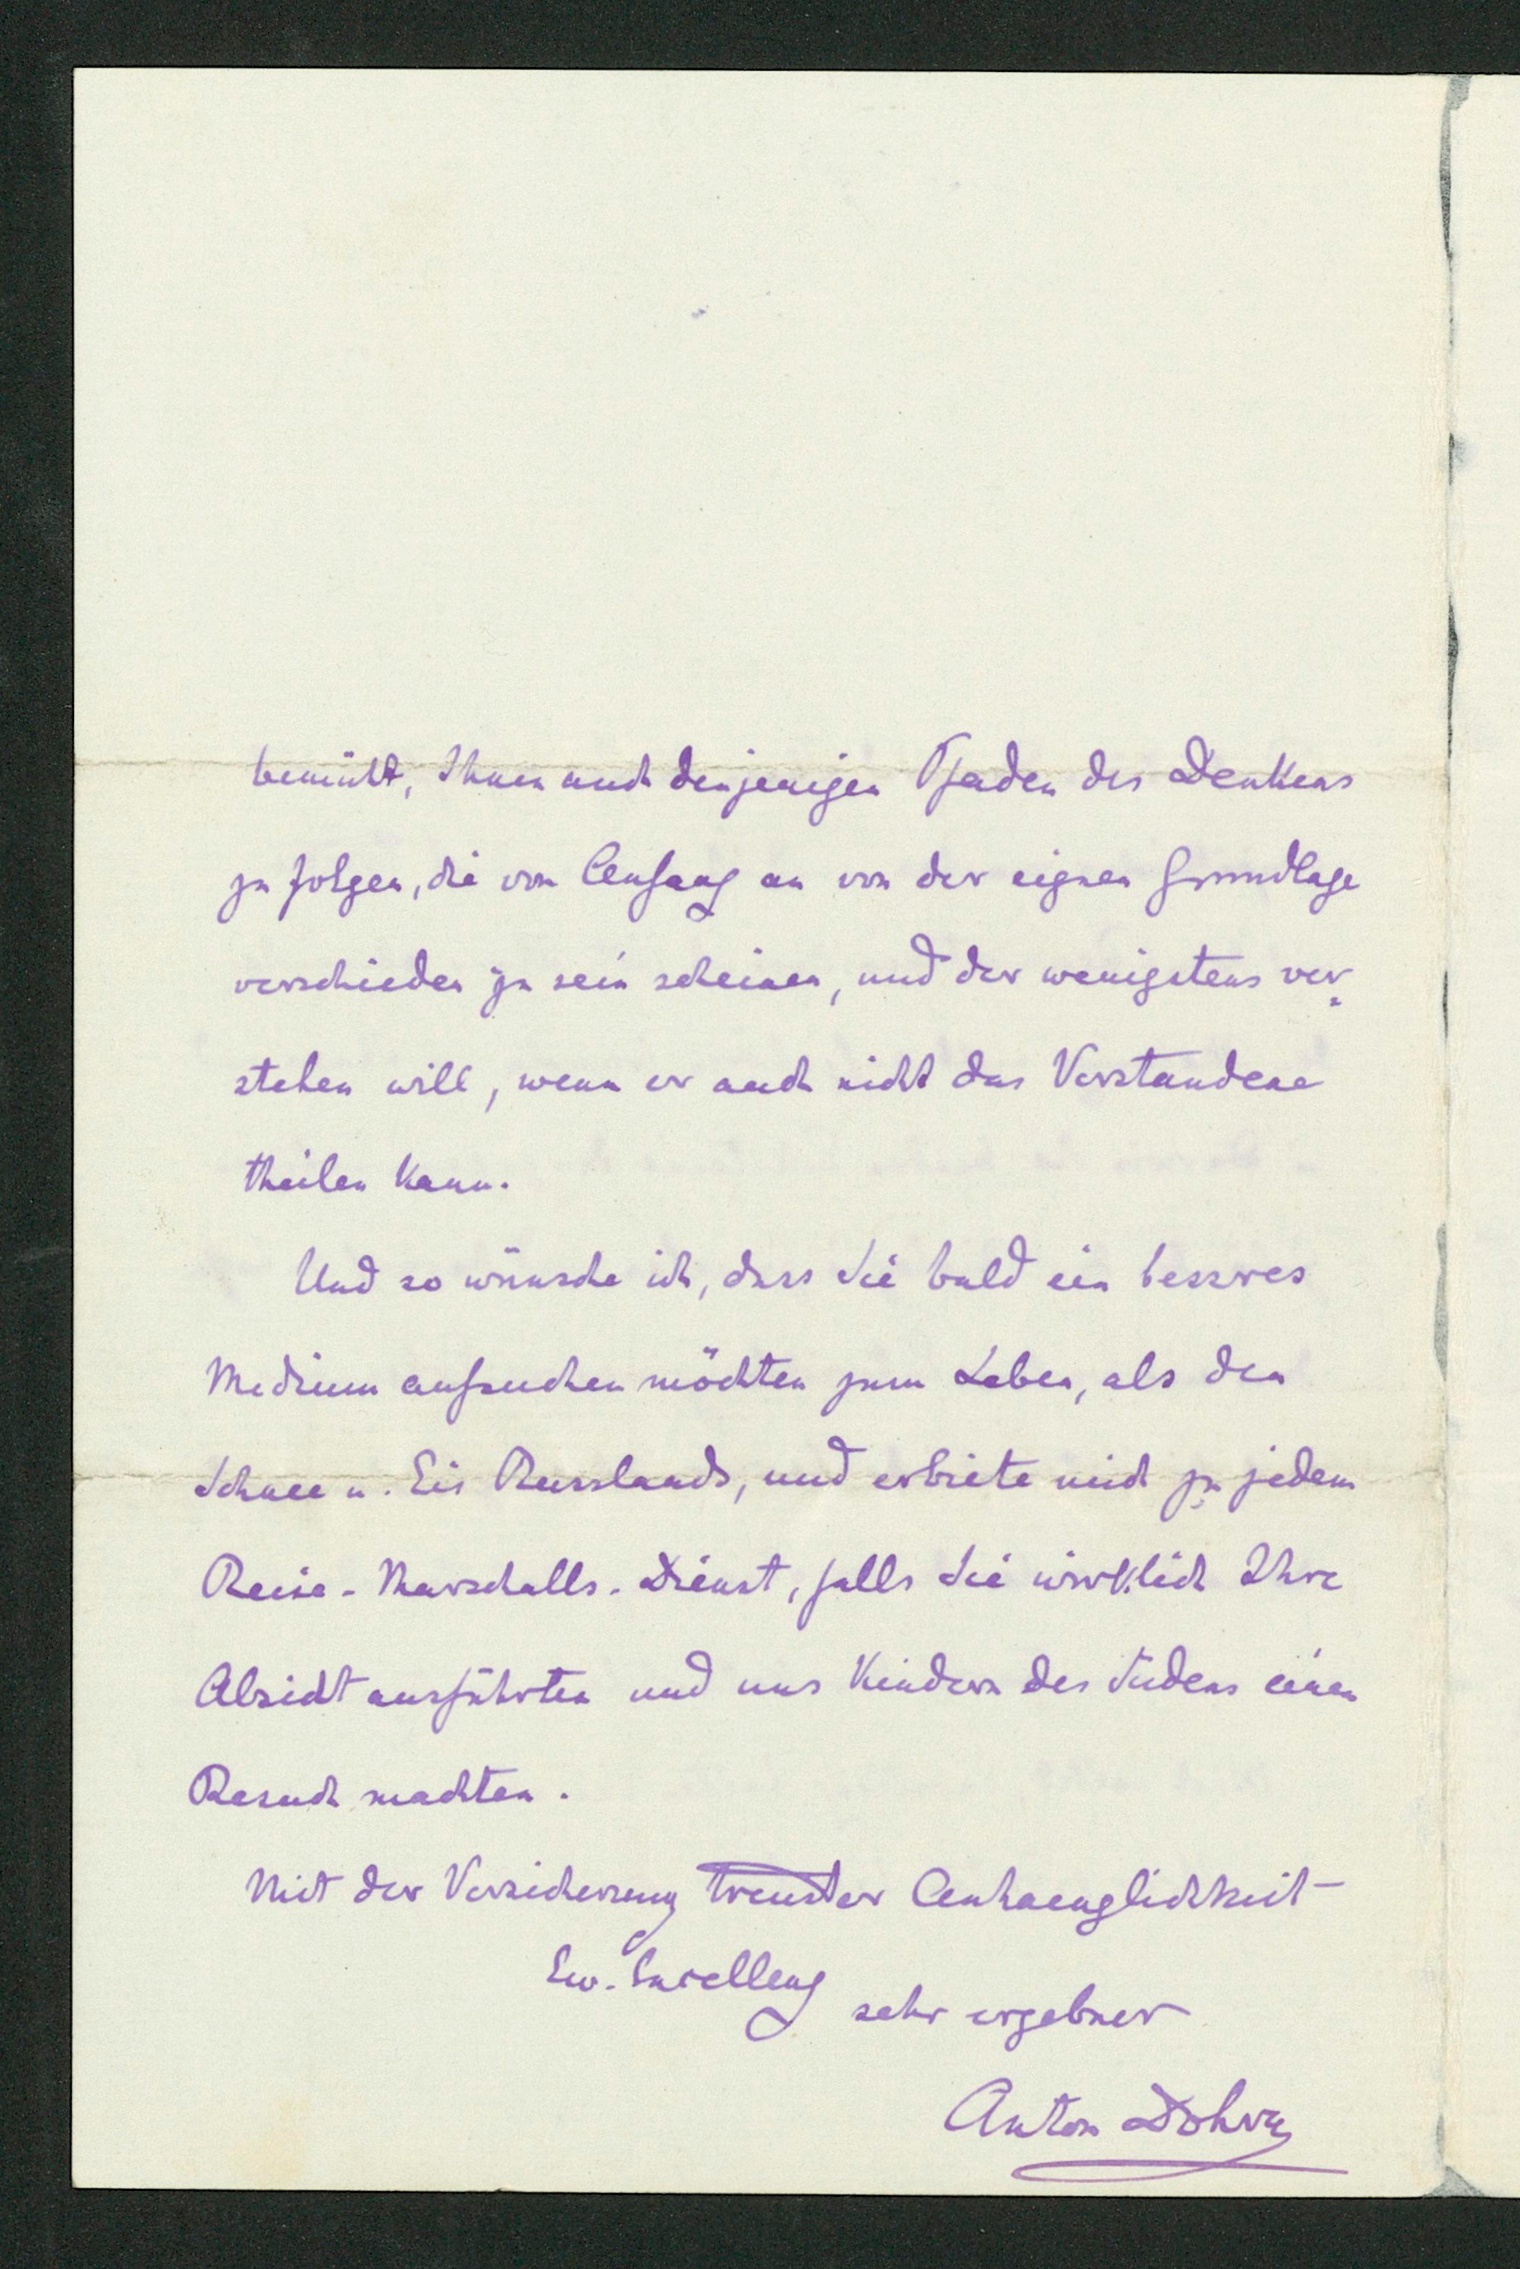 bemüht, Ihnen auch denjenigen Pfaden des Denkens
zu folgen, die von Anfang an von der eignen Grundlage
verschieden zu sein scheinen, und der wenigstens ver-
stehen will, wenn er auch nicht das Verstandene
theilen kann.
Und so wünsche ich, dass Sie bald ein bessres
Medium aufsuchen möchten zum Leben, als den
Schnee u. Eis Russlands, und erbiete mich zu jedem
Reise-Marschalls-Dienst, falls Sie wirklich Ihre
Absicht ausführten und uns Kindern des Südens einen
Besuch machten.
Mit der Versicherung treuster Anhaenglichkeit
Ew. Excellenz
sehr ergebner
Anton Dohrn